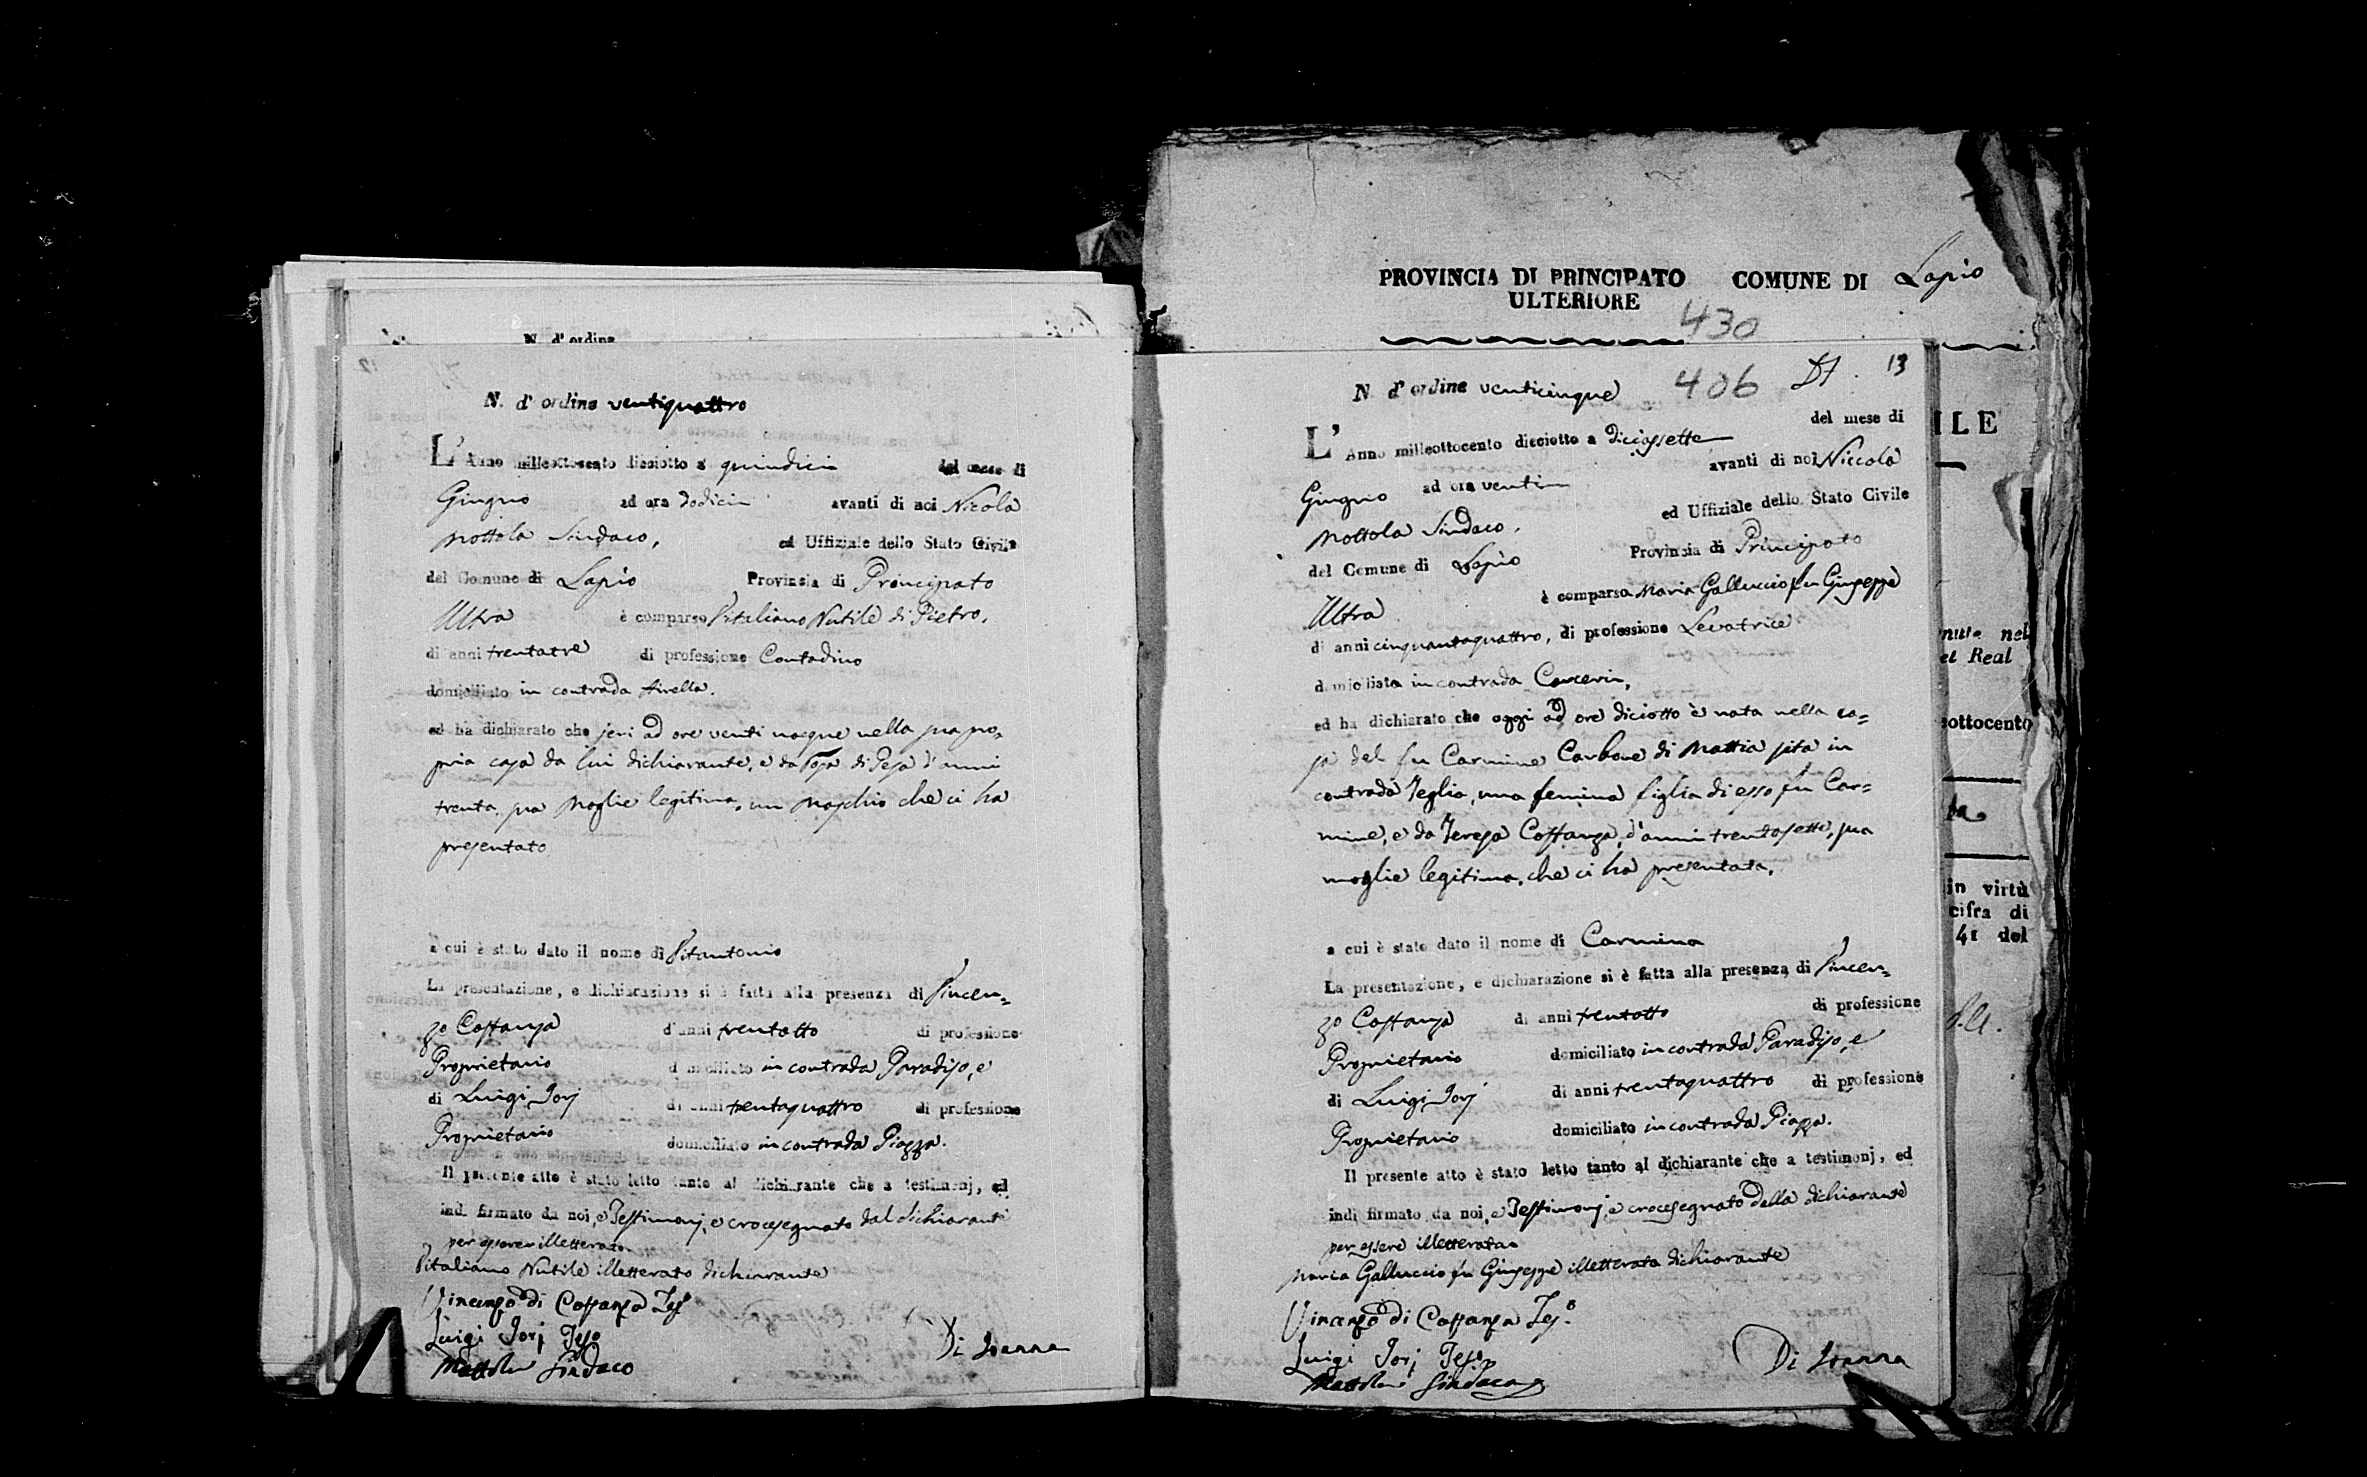 N. d' ordine
N. d' ordine ventiquattro
L' Anno milleottocento dieciotto a quindici del mese di
Giugno ad ora dodici avanti di noi Nicola
Mottola Sindaco, ed Uffiziale dello Stato Civile
del Comune di Lapio Provincia di Principato
Ultra è comparso Vitaliano Nutile di Pietro,
di anni trentatre di professione Contadino
domiciliato in contrada Airella.
ed ha dichiarato che jeri ad ore venti nacque nella sua pro-
pria casa da lui dichiarante, e da Rosa di Pesa d'anni
trenta sua Moglie legitima, un Maschio che ci ha
presentato
a cui è stato dato il nome di Vitantonio
La presentazione, e dichiarazione si è fatta alla presenza di Vincen=
zo Costanza d'anni trentotto di professione
Proprietario domiciliato in contrada Paradiso, e
di Luigi Iorj di anni trentaquattro di professione
Proprietario domiciliato in contrada Piazza.
Il presente atto è stato letto tanto al dichiarante che a testimonj, ed
indi firmato da noi, e Testimonj, e crocesegnato dal dichiarante
per essere illetterato
Vitaliano Nutile illetterato dichiarante
Vincenzo di Costanza Tes.o
Luigi Iorj Teso
Mottola Sindaco
Di Ioanna
PROVINCIA DI PRINCIPATO COMUNE DI Lapio
ULTERIORE
430
406 13
N d' ordine venticinque
L' Anno milleottocento dieciotto a diciassette del mese di
Giugno ad ora venti avanti di noi Niccola
Mottola Sindaco, ed Uffiziale dello Stato Civile
del Comune di Lapio Provincia di Principato
Ultra è comparsa Maria Galluccio fu Giuseppe
di anni cinquantaquattro, di professione Levatrice
domiciliata in contrada Carcerin,
ed ha dichiarato che oggi ad ore diciotto è nata nella ca=
sa del fu Carmine Carbone di Mattia sita in
contrada Teglia, una femina figlia di esso fu Car=
mine, e da Teresa Costanza, d'anni trentasette, sua
moglie legitima, che ci ha presentata,
a cui è stato dato il nome di Carmina
La presentazione, e dichiarazione si è fatta alla presenza di Vincen=
zo Costanza di anni trentotto di professione
Proprietario domiciliato in contrada Paradiso, e
di Luigi Iorj di anni trentaquattro di professione
Proprietario domiciliato in contrada Piazza.
Il presente atto è stato letto tanto al dichiarante che a testimonj, ed
indi firmato da noi, e Testimonj, e crocesegnato della dichiarante
per essere illetterata
Maria Galluccio fu Giuseppe illetterata dichiarante
Vincenzo di Costanza Tes.o
Luigi Iorj Teso
Mottola Sindaco
Di Ioanna
ILE
nute nel
el Real
ottocento
in virtù
cifra di
41 del